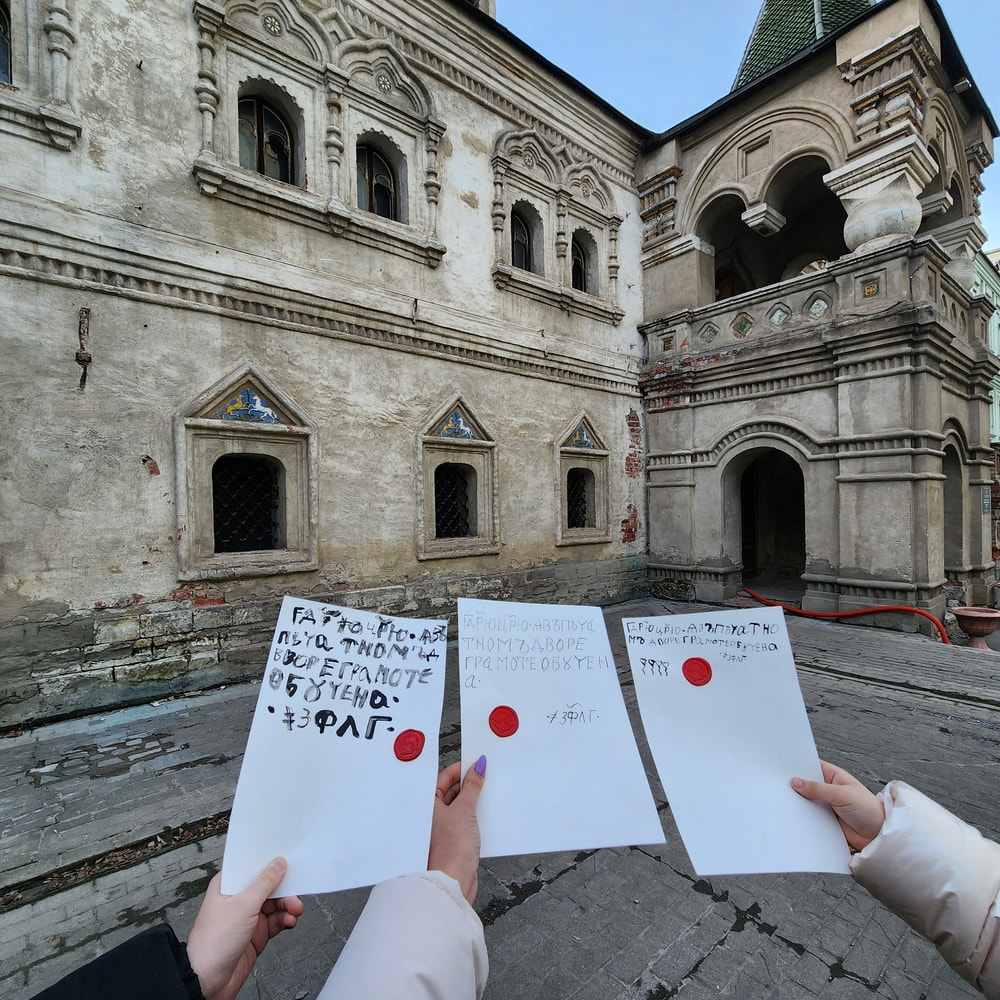 ГДРЮ ЦРЮ·АЗЪ
ПЕЧАТНОМЪ Д
ВОРЕ ГРАМОТЕ
ОБꙊЧЕНА·
·҂ЗФЛГ·
ГДРЮ ЦРЮ·АВЪПЕЧА
ТНОМЪ ДВОРЕ
ГРАМОТЕ ОБꙊЧЕН
А·
·҂ЗФЛГ·
ГДРЮ ЦРЮ·АВЪПЕЧАТНО
МЪ ДВОРЕ ГРАМОТЕ ОБꙊЧЕНА
·҂ЗФЛГ·